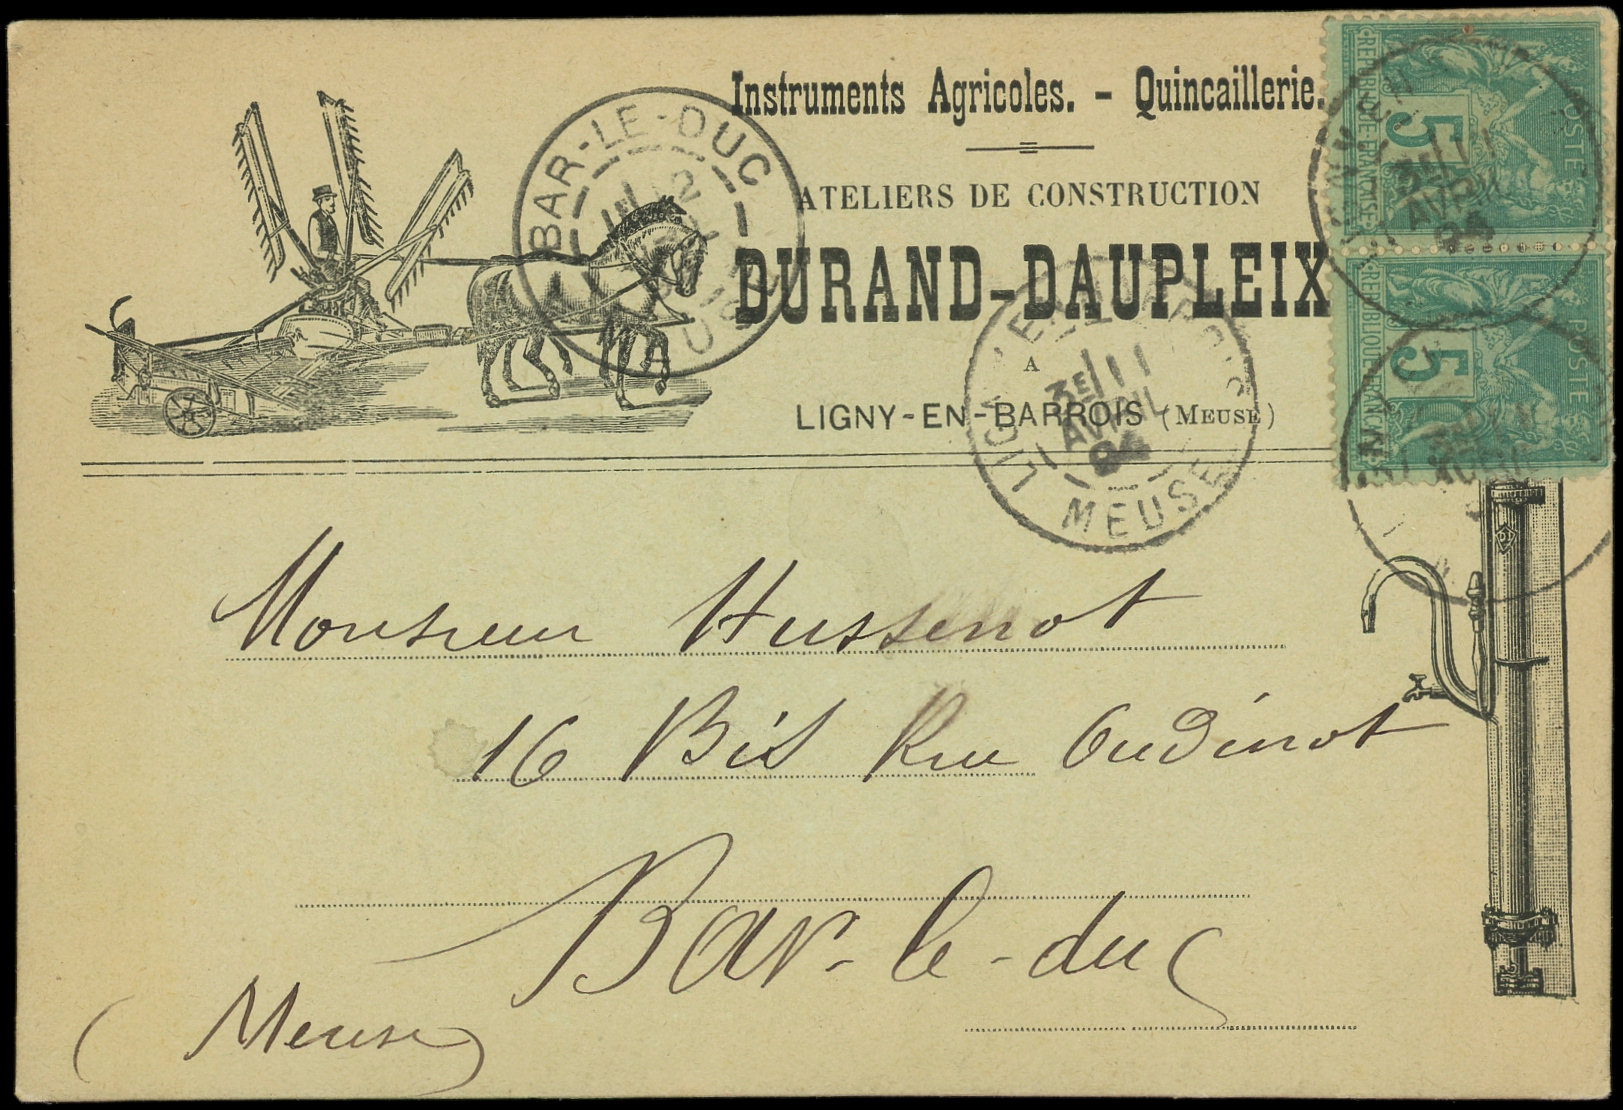 Instruments Agricoles. - Quincaillerie.
ATELIERS DE CONSTRUCTION
DURAND-DAUPLEIX
A
LIGNY-EN-BARROIS (MEUSE)
BAR-LE-DUC
12
LIGNY-EN-BARROIS
3E 11
AVRIL
94
MEUSE
POSTE
5
REPUBLIQUE FRANCAISE
3E 11
AVRIL
94
POSTE
5
REPUBLIQUE FRANCAISE
Monsieur Hussenot
16 Bis Rue Oudinot
Bar-le-duc
(Meuse)